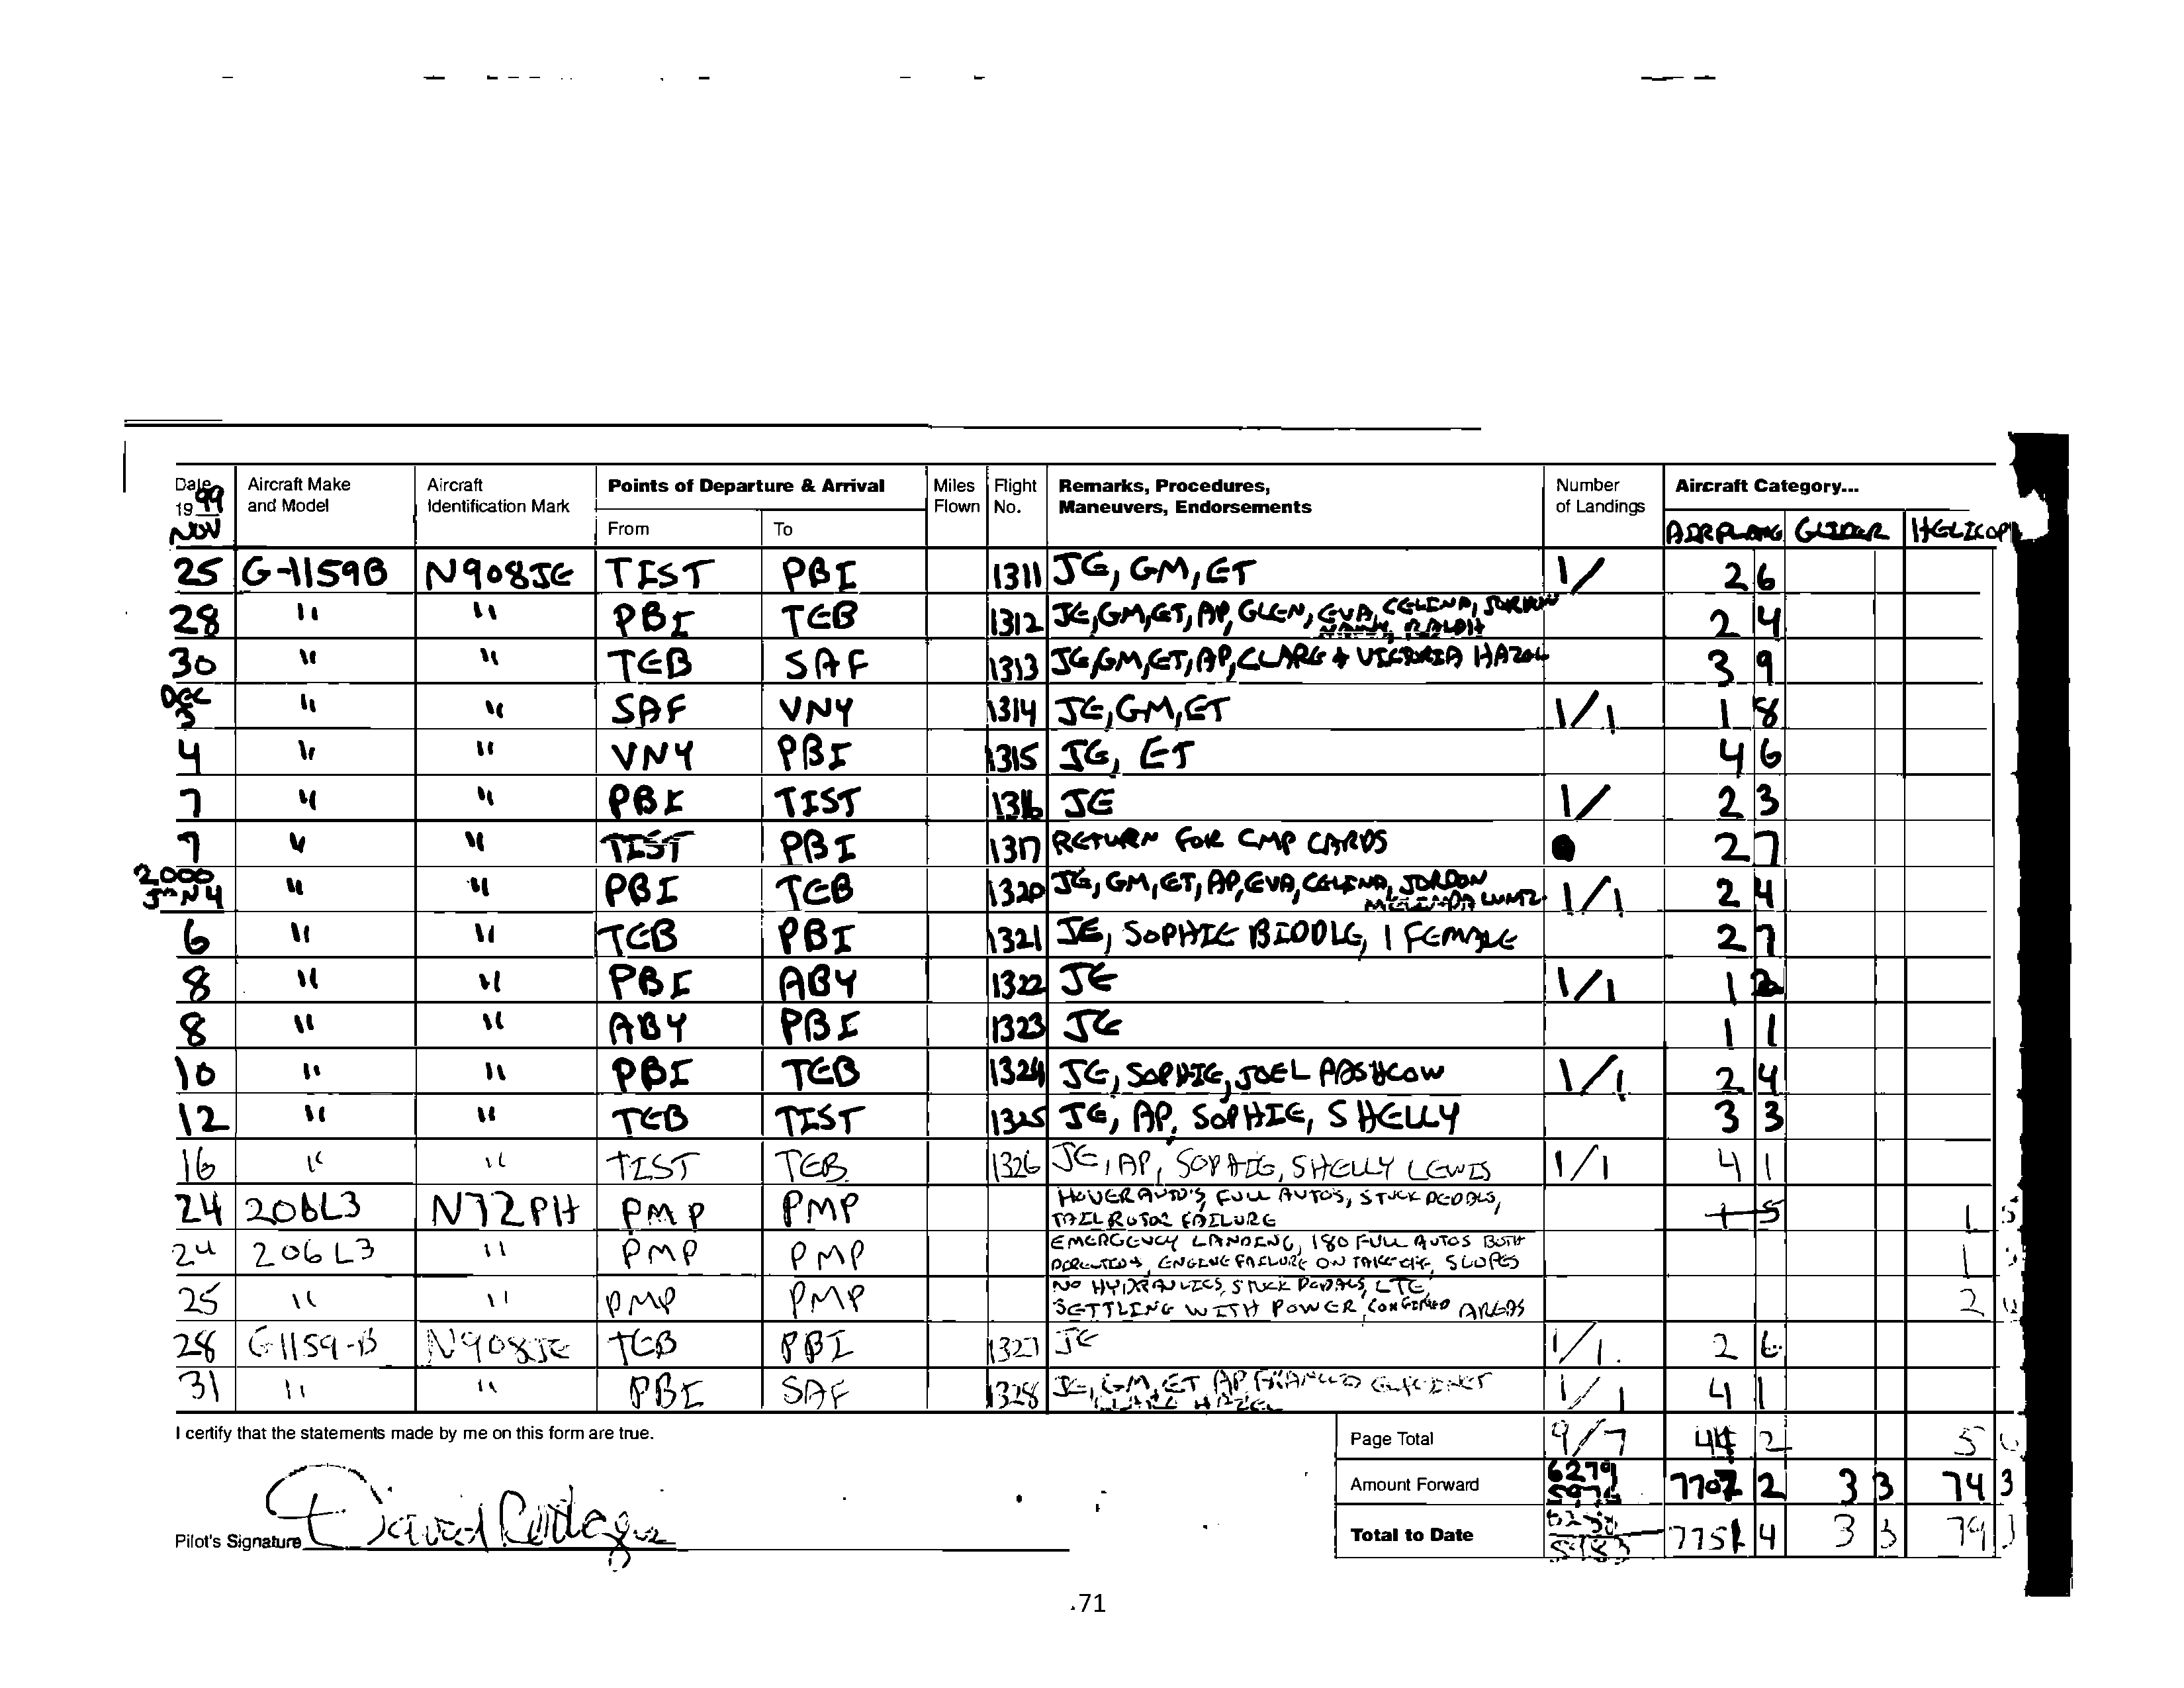 Date Aircraft Make and Model Aircraft Identification Mark Points of Departure & Arrival Miles Flown Flight No. Remarks, Procedures, Maneuvers, Endorsements Number of Landings Aircraft Category...
19 99 NOV From To AIRPLANE GLIDER HELICOP
25 G-1159B N908JE TIST PBI 1311 JE, GM, ET 1/ 2 6
28 " " PBI TEB 1312 JE, GM, ET, AP, GLEN, EVA, CELINA, JORDAN NANNY, RALPH 2 4
30 " " TEB SAF 1313 JE, GM, ET, AP, CLARE & VICTORIA HAZEL 3 9
DEC 3 " " SAF VNY 1314 JE, GM, ET 1/1 1 8
4 " " VNY PBI 1315 JE, ET 4 6
7 " " PBI TIST 1316 JE 1/ 2 3
7 " " TIST PBI 1317 RETURN FOR CMP CARDS 2 7
2000 JAN 4 " " PBI TEB 1320 JE, GM, ET, AP, EVA, CELINA, JORDON MELINDA LUNTZ 1/1 2 4
6 " " TEB PBI 1321 JE, SOPHIE BIDDLE, 1 FEMALE 2 7
8 " " PBI ABY 1322 JE 1/1 1
8 " " ABY PBI 1323 JE 1 1
10 " " PBI TEB 1324 JE, SOPHIE, JOEL PASHCOW 1/1 2 4
12 " " TEB TIST 1325 JE, AP, SOPHIE, SHELLY 3 3
16 " " TIST TEB 1326 JE, AP, SOPHIE, SHELLY LEWIS 1/1 4 1
24 206L3 N72PH PMP PMP HOVER AUTO'S, FULL AUTOS, STUCK PEDALS, TAIL ROTOR FAILURE 1 5 1 5
24 206L3 " PMP PMP EMERGENCY LANDING, 180 FULL AUTOS BOTH DIRECTIONS, ENGINE FAILURE ON TAKE OFF, SLOPES 1
25 " " PMP PMP NO HYDRAULICS, STUCK PEDALS, LTE, SETTLING WITH POWER, CONFINED AREAS 2
28 G-1159-B N908JE TEB PBI 1327 JE 1/1 2 6
31 " " PBI SAF 1328 JE, GM, ET AP, CLARE HAZEL 1/1 4 1
I certify that the statements made by me on this form are true. Page Total 9/7 44 2 5
Amount Forward 6279 5976 7707 2 3 3 74 3
Pilot's Signature David Rodgers Total to Date 775 4 3 3 79
71